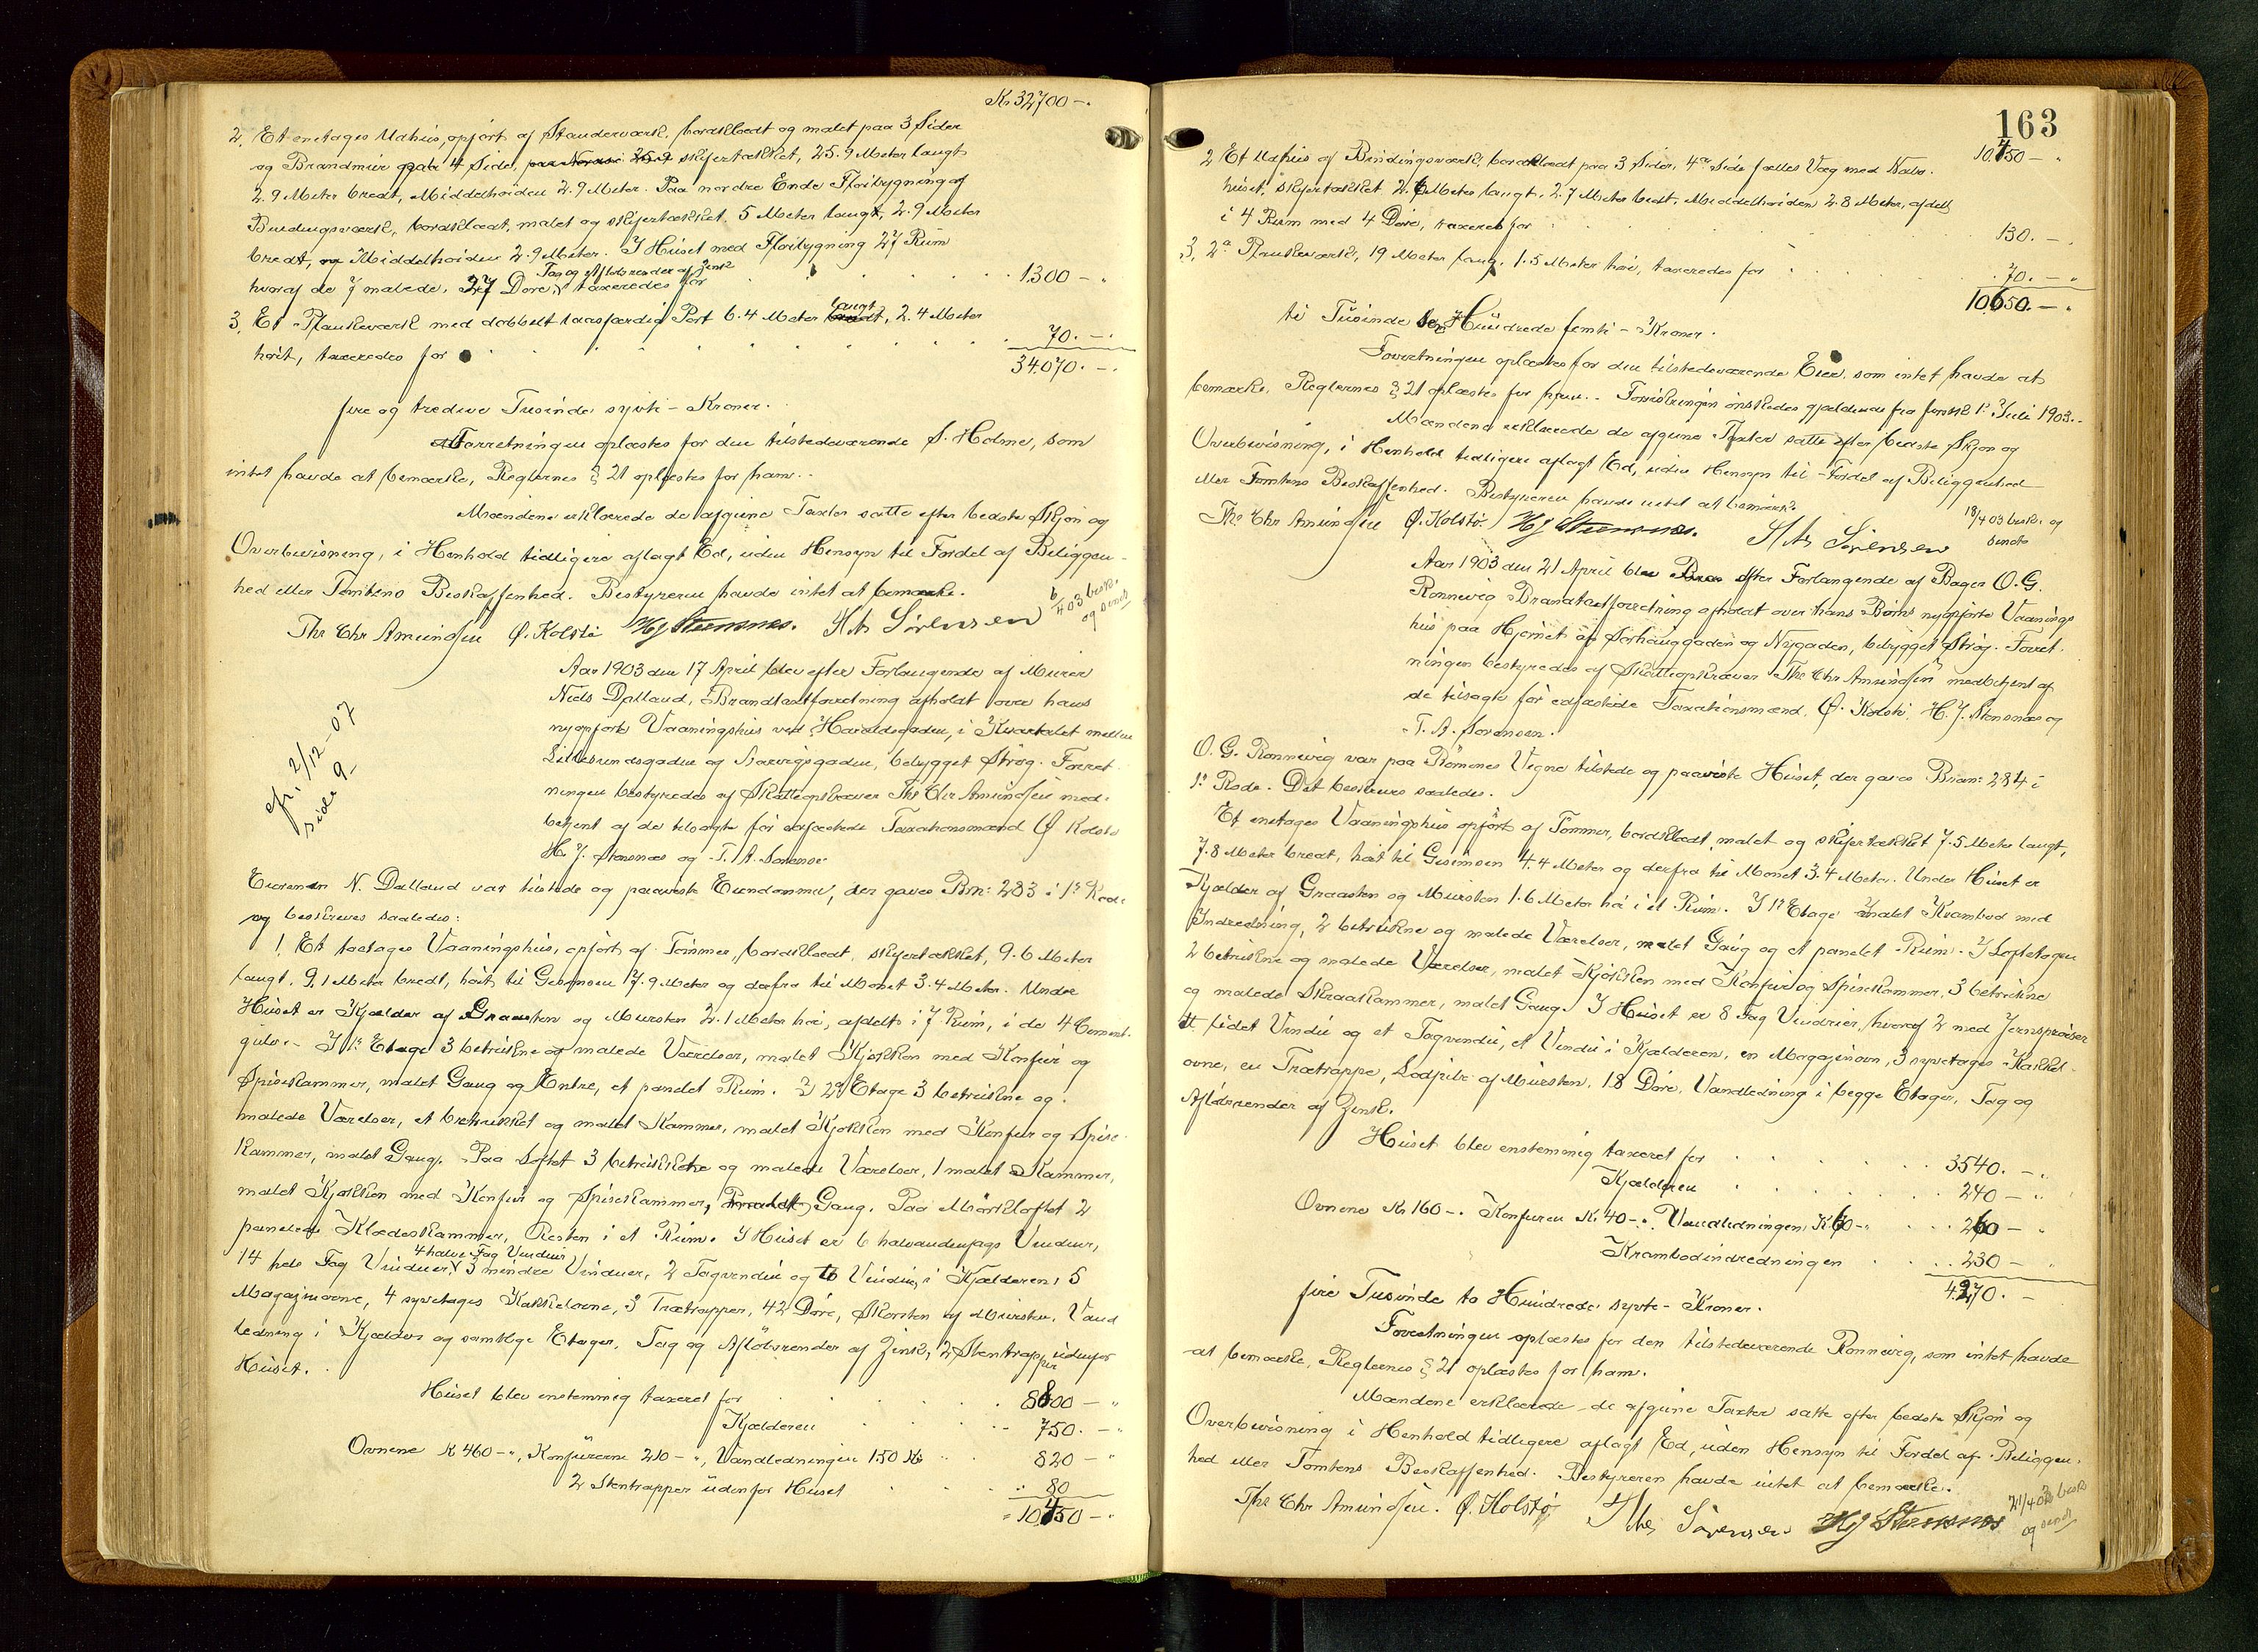 Kr 32700 -.
2. Et enetages Udhus, opført af Standerværk, bordklædt og malet paa 3 Sider
og Brandmur paa 4 Side, skifertækket, 25.9 Meter langt
2.9 Meter bredt, Middelhøiden 2.9 Meter. Paa nordre Ende Tilbygning af
Bindingsværk, bordklædt, malet og skifertækket, 5 Meter langt, 2.9 Meter
bredt, og Middelhøiden 2.9 Meter. I Huset med Tilbygning 27 Rum
Tag og Afløbsrender af Zink
hvoraf de 7 malede. 27 Døre, taxeredes for 1300 - „
3. Et Plankeværk med dobbelt laasfærdig Port 6.4 Meter langt, 2.4 Meter
høit, taxeredes for 70. - „
34.070. - „
fire og tredive Tusinde sytti - Kroner.
Forretningen oplæstes for den tilstedeværende S. Holme, som
intet havde at bemærke, Reglernes § 21 oplæstes for ham.
Mændene erklærede de afgivne Taxter satte efter bedste Skjøn og
Overbevisning, i Henhold tidligere aflagt Ed, uden Hensyn til Fordel af Beliggen-
hed eller Tomtens Beskaffenhed. Bestyreren havde intet at bemærke.
6/4 03 beskr. og sendt
Ths Chr Amundsen Ø. Kolstø HJ Stensnes. T. A. Sørensen
Aar 1903 den 17 April blev efter Forlangende af Murer
Niels Dalland, Brandtaxtforretning afholdt over hans
nyopførte Vaaningshus ved Haraldsgaden, i Kvartalet mellem
Lillesundsgaden og Skarvigsgaden, bebygget Strøg. Forret-
ningen bestyredes af Skatteopkræver Ths Chr Amundsen med-
betjent af de tilsagte før edfæstede Taxationsmænd Ø Kolstø
H. J. Stensnæs og T. A. Sørensen.
cfr. 2/12-07
side 9
Eieren N. Dalland var tilstede og paaviste Eiendommen, der gaves Brn: 283 i 1ste Rode
og beskreves saaledes:
1. Et toetages Vaaningshus, opført af Tømmer, bordklædt, skifertækket, 9.6 Meter
langt. 9.1 Meter bredt, høit til Gesimsen 7.9 Meter og derfra til Mønet 3.4 Meter. Under
Huset er Kjælder af Graasten og Mursten 2.1 Meter høi, afdelt i 7 Rum, i de 4 Cement-
gulv. - I 1ste Etage 3 betrukne og malede Værelser, malet Kjøkken med Komfur og
Spisekammer, malet Gang og Entre, et panelet Rum. I 2den Etage 3 betrukne og
malede Værelser, et betrukket og malet Kammer, malet Kjøkken med Komfur og Spise-
kammer, malet Gang. Paa Loftet 3 betrukkne og malede Værelser, 1 malet Kammer,
malet Kjøkken med Komfur og Spisekammer, Gang. Paa Mørkloftet 2
panelede Klædeskammer, Resten i et Rum. I Huset er 6 halvandenfags Vinduer,
4 halve Fag Vinduer
14 hele Fag Vinduer, 3 mindre Vinduer, 2 Tagvendu og 6 Vindu i Kjælderen, 5
Magazinovne, 4 syvetages Kakkelovne, 3 Trætrapper, 42 Døre, Skorsten af Mursten. Vand-
ledning i Kjælder og samtlige Etager. Tag og Afløbsrender af Zink, 2 Stentrapper udenfor
Huset.
Huset blev enstemmig taxeret for 8800 - „
Kjælderen 750. - „
Ovnene K 460 - „, Komfurerne 210 - „, Vandledningen 150 Kr 820 - „
2 Stentrapper udenfor Huset 80
10.450 - „
163
10.450 - „
2 Et Udhus af Bindingsværk, bordklædt paa 3 Sider, 4de Side fælles Væg med Nabo-
huset, skifertækket 2.6 Meter langt, 2.7 Meter bredt, Middelhøiden 2.8 Meter, afdelt
i 4 Rum med 4 Døre, taxeret for 130. - „
3. 2de Plankeværk, 19 Meter lang. 1.5 Meter høi, taxeredes for 70. - „
10.650. - „
ti Tusinde sex Hundrede femti - Kroner.
Forretningen oplæstes for den tilstedeværende Eier, som intet havde at
bemærke. Reglernes § 21 oplæstes for ham. - Forsikringen ønskedes gjældende fra første 1ste Juli 1903. -
Mændene erklærede de afgivne Taxter satte efter bedste Skjøn og
Overbevisning, i Henhold tidligere aflagt Ed, uden Hensyn til Fordel af Beliggenhed
eller Tomtens Beskaffenhed. Bestyreren havde intet at bemærke.
18/4 03 beskr. og sendt
Ths Chr Amundsen Ø. Kolstø HJ Stensnes. T. A. Sørensen
Aar 1903 den 21 April blev efter Forlangende af Bager O. G.
Rønnevig Brandtaxtforretning afholdt over hans Børns nyopførte Vaanings-
hus paa Hjørnet af Sørhauggaden og Nygaden, bebygget Strøg. Forret-
ningen bestyredes af Skatteopkræver Ths Chr Amundsen medbetjent af
de tilsagte før edfæstede Taxationsmænd, Ø. Kolstø, H. J. Stensnæs og
T. A. Sørensen.
O. G. Rønnevig var paa Børnenes Vegne tilstede og paaviste Huset, der gaves Bran: 284 i
1ste Rode. Det beskreves saaledes.
Et enetages Vaaningshus opført af Tømmer, bordklædt, malet og skifertækket 7.5 Meter langt,
7.8 Meter bredt, høit til Gesimsen 4.4 Meter og derfra til Mønet 3.4 Meter. Under Huset er
Kjælder af Graasten og Mursten 1.6 Meter høi i et Rum. I 1ste Etage malet Krambod med
Indredning, 2 betrukne og malede Værelser, malet Gang og et panelet Rum. - I Loftetagen
2 betrukne og malede Værelser, malet Kjøkken med Komfur og Spisekammer, 3 betrukne
og malede Skraakammer, malet Gang. I Huset er 8 Fag Vinduer, hvoraf 2 med Jernsprosser
et lidet Vindu og et Tagvendu, et Vindu i Kjælderen, en Magazinovn, 3 syvetages Kakkel-
ovne, en Trætrappe, Lodpibe af Mursten, 18 Døre, Vandledning i begge Etager, Tag og
Afløbsrender af Zink.
Huset blev enstemmig taxeret for 3540. - „
Kjælderen 240 - „
Ovnene Kr 160 -. Komfuren Kr. 40 -. Vandledningen K 60 - 260 - „
Krambodindredningen 230 - „
4270. -
fire Tusinde to Hundrede sytti - Kroner.
Forretningen oplæstes for den tilstedeværende Rønnevig, som intet havde
at bemærke, Reglernes § 21 oplæstes for ham.
Mændene erklærede de afgivne Taxter satte efter bedste Skjøn og
Overbevisning i Henhold tidligere aflagt Ed, uden Hensyn til Fordel af Beliggen-
hed eller Tomtens Beskaffenhed. Bestyreren havde intet at bemærke.
21/4 03 beskr og sendt
Ths Chr Amundsen. Ø. Kolstø T. A. Sørensen HJ Stensnes